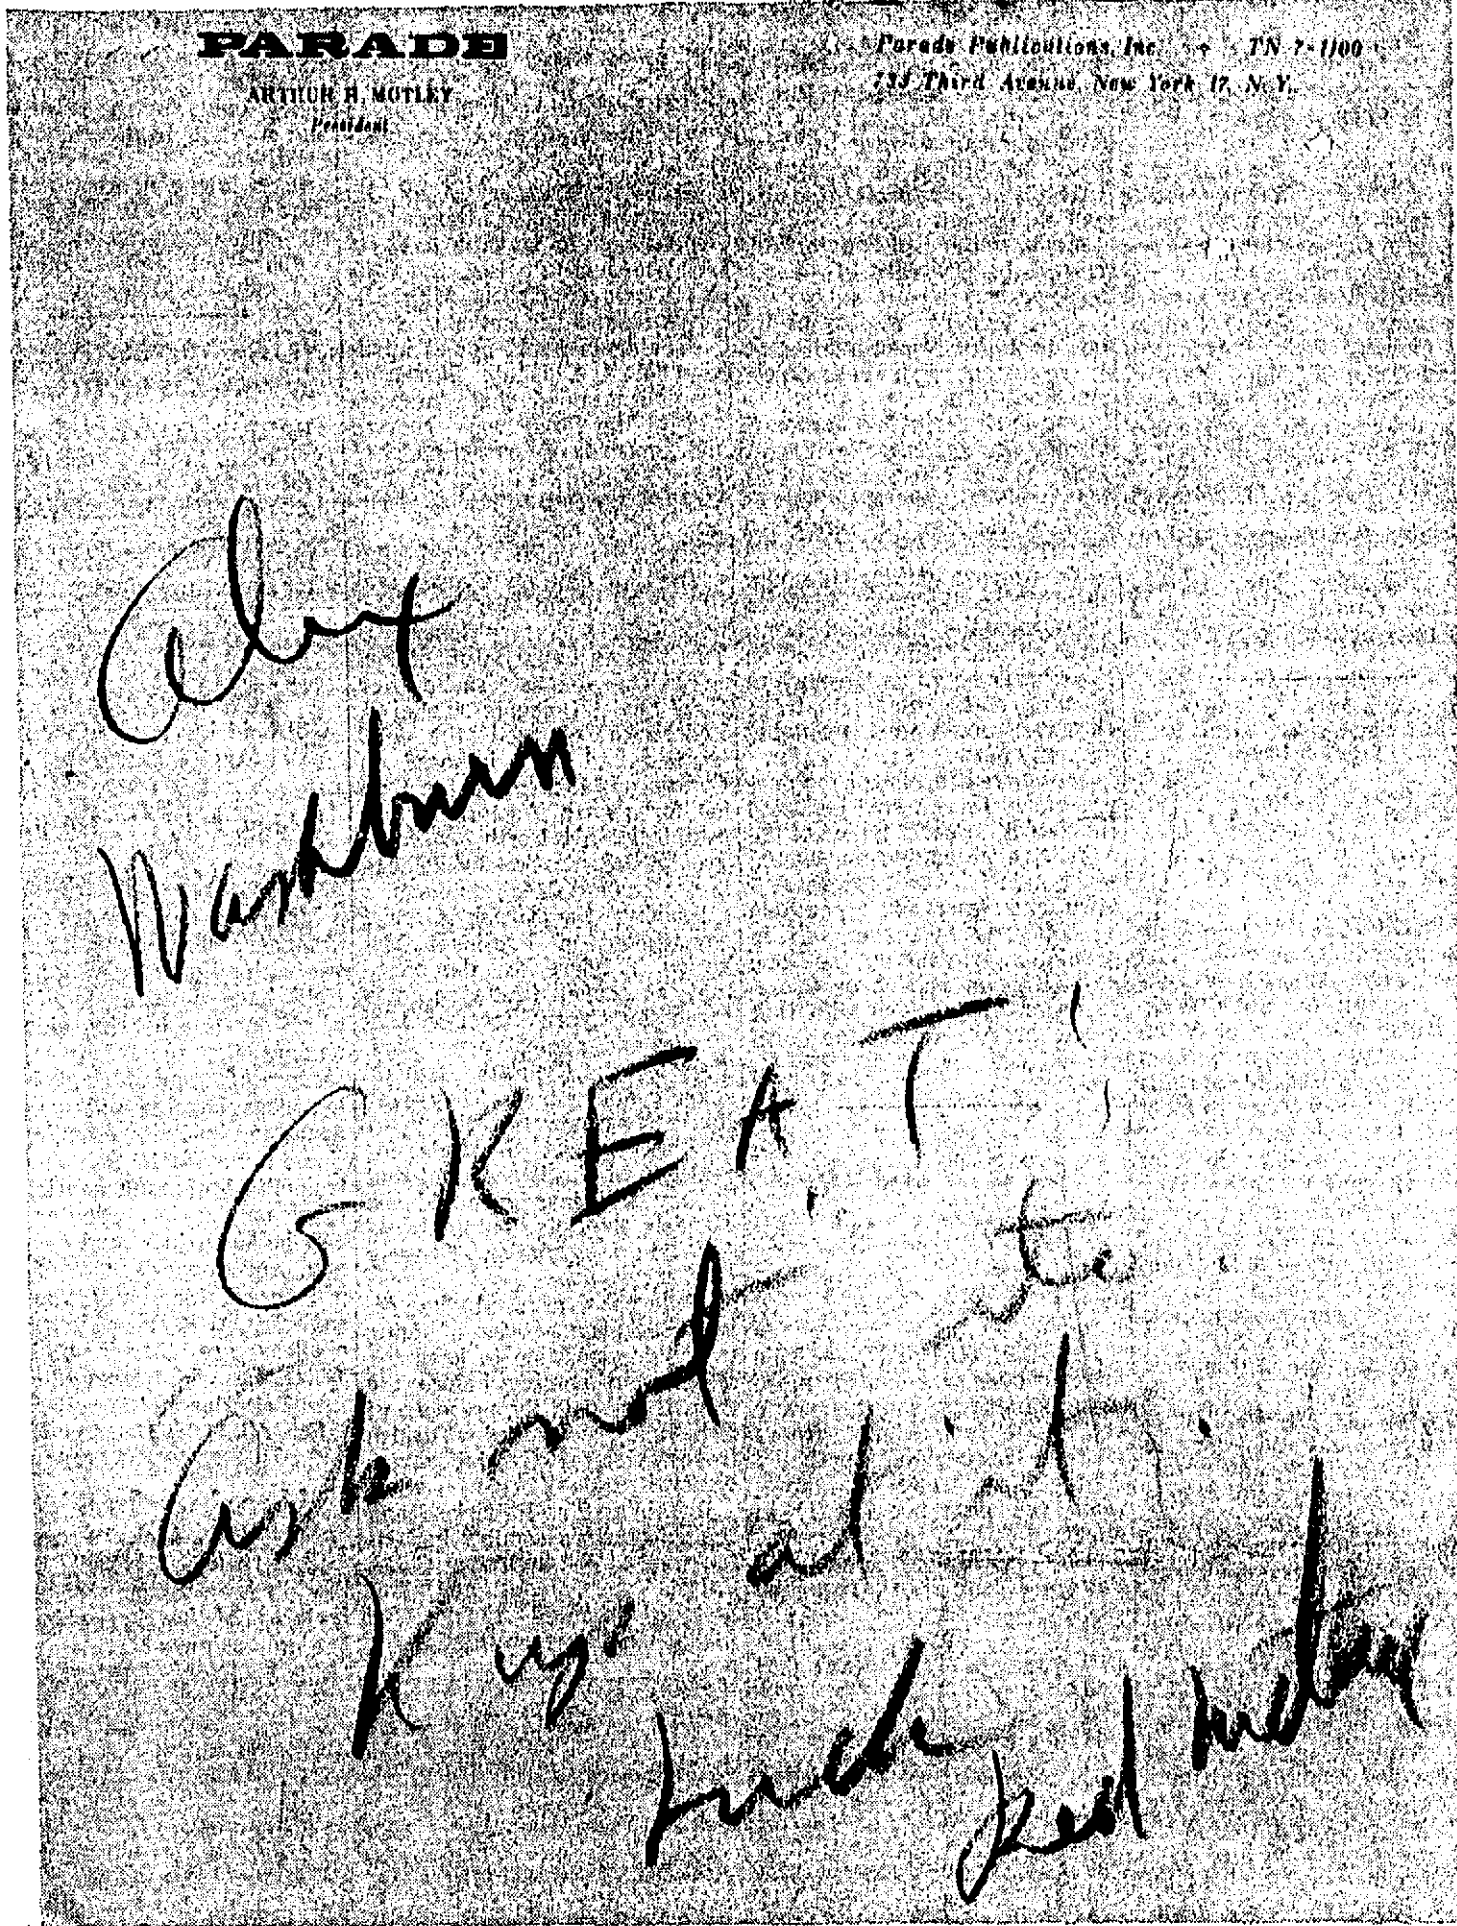 PARADE
ARTHUR H. MOTLEY
President
Parade Publications, Inc. TN 7-1100
733 Third Avenue, New York 17, N.Y.
Alex
Washburn
GREAT!
Ask not to
at it.
Keep
Luck
Red Motley